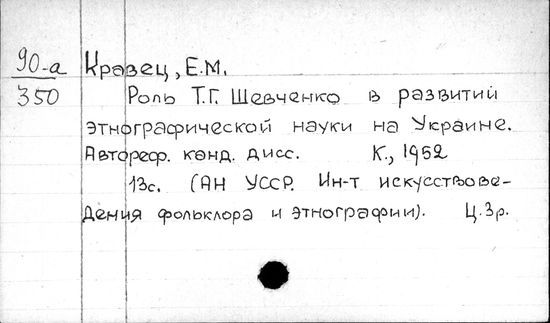 90-а Кравец, Е.М.
350 Роль Т.Г. Шевченко в развитии
этнографической науки на Украине.
Автореф. канд. дисс. К., 1952
13с. (АН УССР. Ин-т искусствове-
дения фольклора и этнографии). Ц.3р.